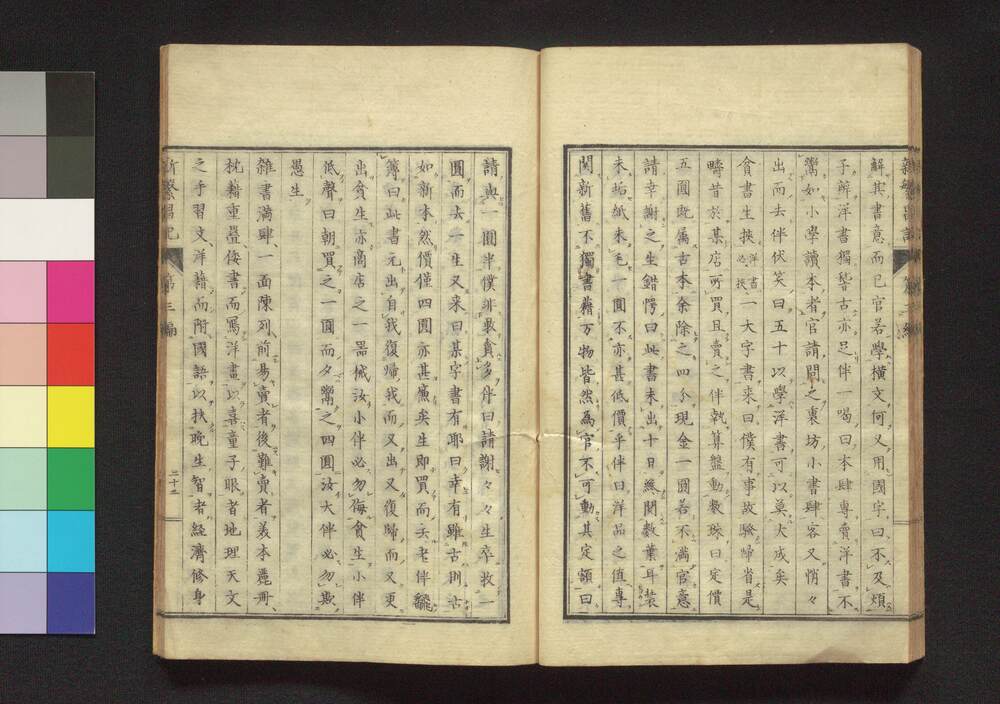 解其書意而已官若學橫文何又用國字曰不及煩
子解洋書獨皆古亦足伴一喝曰本肆專賣洋書不
鬻如小學讀本者官請問之裏坊小書肆客又悄々
出而去伴伏笑曰五十以學洋書可以莫大成矣
貧書生挾洋書必挾一大字書来曰僕有事故驗歸省是
疇昔於某店所買且賣之伴執算盤動數珠曰定價
五圓既属古本余除之四分現金一圓若不滿官意
請幸謝之生錯愕曰此書未出十日繙閱數葉耳装
未垢紙未毛一圓不亦甚低價乎伴曰洋品之值專
関新舊不獨書籍万物皆然為官不可動其定額曰
請與一圓半僕非敢貪多伴曰請謝々々生卒收一
圓而去一生又来曰某字書有耶曰幸有雖古刊古
如新本然價僅四圓亦甚廉矣生即買而去老伴繙
簿曰此書元出自我復歸我而又出又復歸而又更
出貧生亦商店之一器械汝小伴必勿侮貧生小伴
低聲曰朝買之一圓而夕鬻之四圓汝大伴必勿欺
愚生
雑書満肆一面陳列前易賣者後難賣者美本麗冊
枕藉重疊倭書而寫洋畫以喜童子眼者地理天文
之手習文洋籍而附國語以扶晚生智者経濟修身
新繁昌記
第三編
二十二